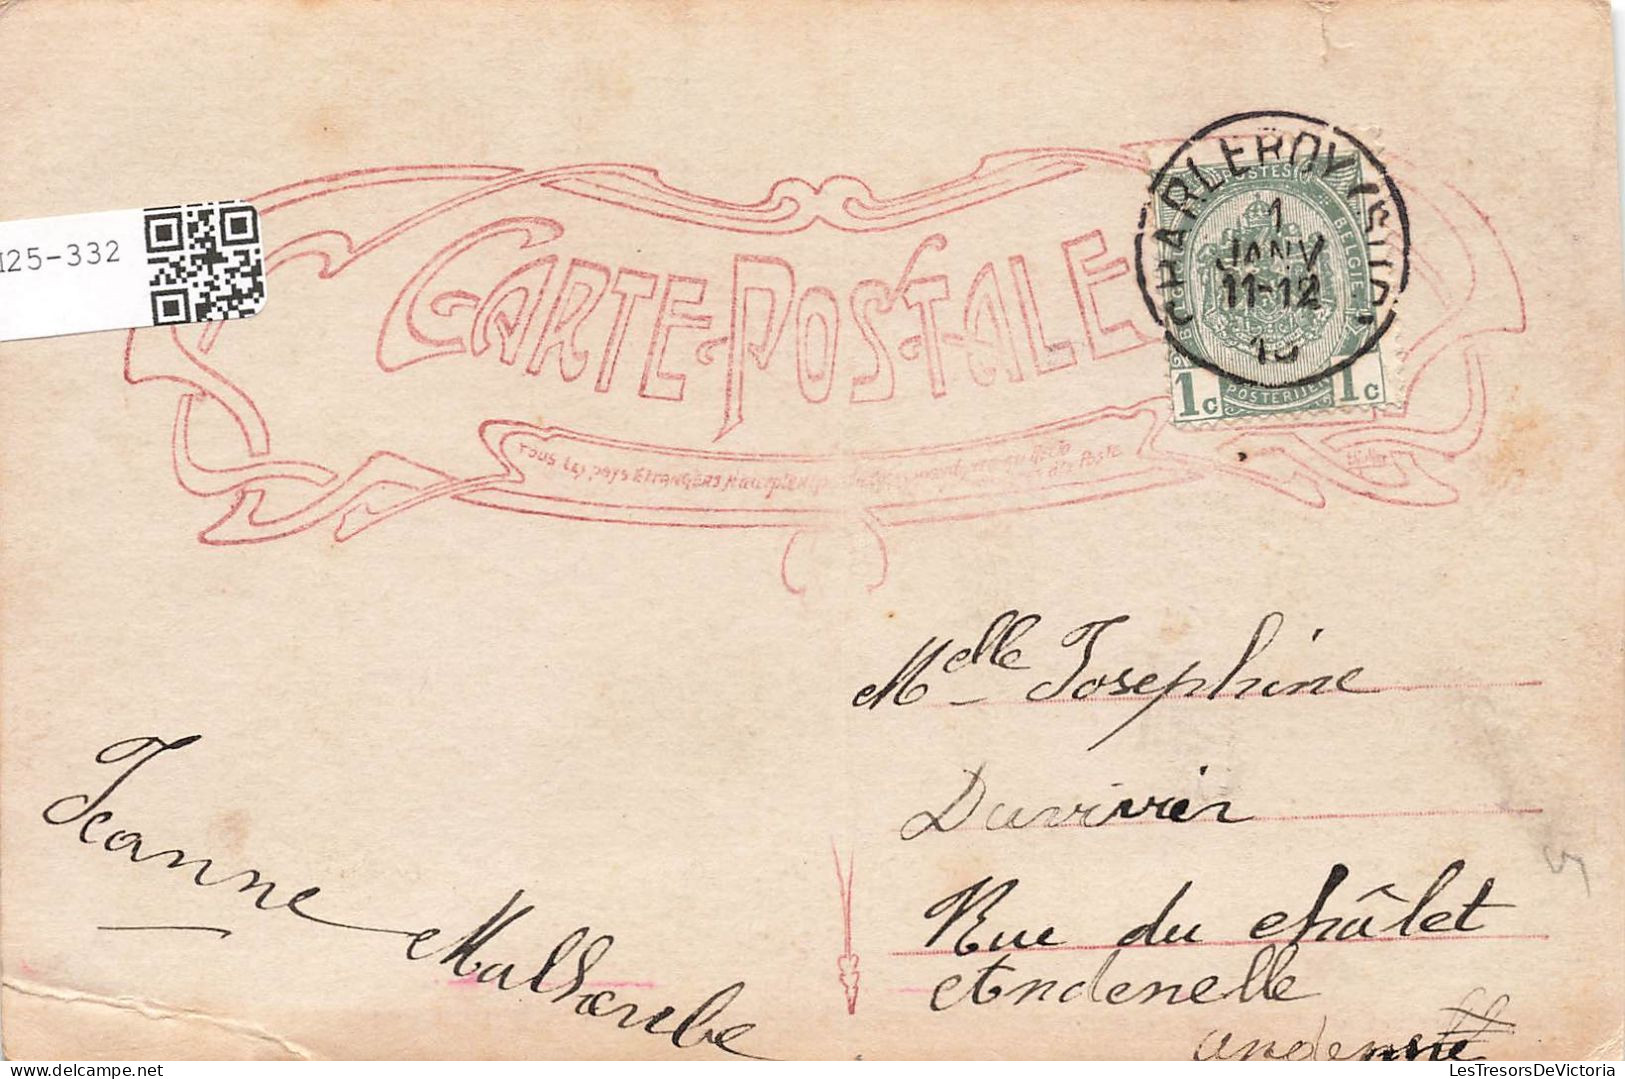 125-332
CARTE-POSTALE
TOUS LES PAYS ETRANGERS N'acceptent
de Poste
CHARLEROY (SUD)
1
JANV
11-12
BELGIË
1c POSTERIJEN 1c
Melle Josephine
Duvivier
Rue du châlet
Andenelle
andenne
Jeanne Malherbe
LesTresorsDeVictoria